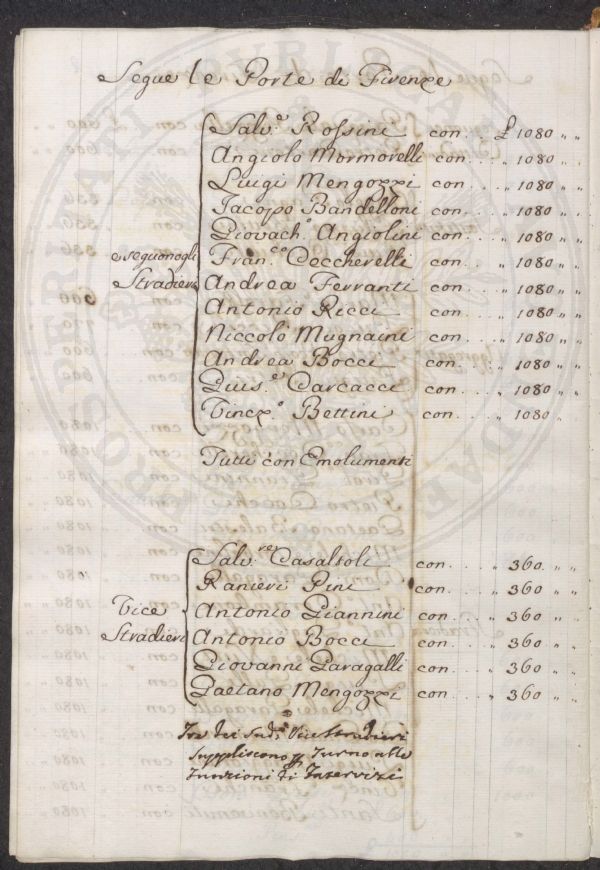 Segue le Porte di Firenze
Salv.e Rossini con. . . £ 1080 „ „
Angiolo Mormorelli con. . . „ 1080 „ „
Luigi Mengozzi con. . . „ 1080 „ „
Jacopo Bandelloni con. . . „ 1080 „ „
Giovach. Angiolini con. . . „ 1080 „ „
seguono gli Fran.co Ceccherelli con. . . „ 1080 „ „
Stradieri Andrea Ferranti con. . . „ 1080 „ „
Antonio Ricci con. . . „ 1080 „ „
Niccolò Mugnaini con. . . „ 1080 „ „
Andrea Bocci con. . . „ 1080 „ „
Guis.e Carcacci con. . . „ 1080 „ „
Vincz.o Bettini con. . . „ 1080 „
Tutti con Emolumenti
Salv.re Casaltoli con. . . . „ 360 „ „
Ranieri Pini con. . . . „ 360 „ „
Vice Antonio Giannini con. . . . „ 360 „ „
Stradieri Antonio Bocci con. . . . „ 360 „ „
Giovanni Paragalli con. . . . „ 360 „ „
Gaetano Mengozzi con. . . . „ 360 „ „
Tre dei Sud.i Vice Stradieri
suppliscono p Turno alle
Funzioni di